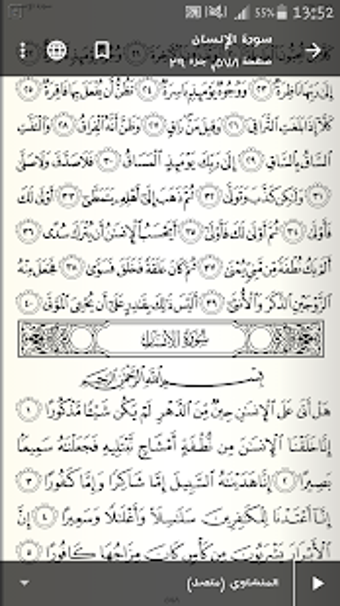 55% 13:52
سورة الإنسان
صفحة ٥٧٨، جزء ٢٩
إِلَىٰ رَبِّهَا نَاظِرَةٌ ٢٣ وَوُجُوهٌ يَوْمَئِذٍ بَاسِرَةٌ ٢٤ تَظُنُّ أَن يُفْعَلَ بِهَا فَاقِرَةٌ ٢٥
كَلَّا إِذَا بَلَغَتِ التَّرَاقِيَ ٢٦ وَقِيلَ مَنْ رَاقٍ ٢٧ وَظَنَّ أَنَّهُ الْفِرَاقُ ٢٨ وَالْتَفَّتِ
السَّاقُ بِالسَّاقِ ٢٩ إِلَىٰ رَبِّكَ يَوْمَئِذٍ الْمَسَاقُ ٣٠ فَلَا صَدَّقَ وَلَا صَلَّىٰ
٣١ وَلَٰكِن كَذَّبَ وَتَوَلَّىٰ ٣٢ ثُمَّ ذَهَبَ إِلَىٰ أَهْلِهِ يَتَمَطَّىٰ ٣٣ أَوْلَىٰ لَكَ
فَأَوْلَىٰ ٣٤ ثُمَّ أَوْلَىٰ لَكَ فَأَوْلَىٰ ٣٥ أَيَحْسَبُ الْإِنسَانُ أَن يُتْرَكَ سُدًى ٣٦
أَلَمْ يَكُ نُطْفَةً مِّن مَّنِيٍّ يُمْنَىٰ ٣٧ ثُمَّ كَانَ عَلَقَةً فَخَلَقَ فَسَوَّىٰ ٣٨ فَجَعَلَ مِنْهُ
الزَّوْجَيْنِ الذَّكَرَ وَالْأُنثَىٰ ٣٩ أَلَيْسَ ذَٰلِكَ بِقَادِرٍ عَلَىٰ أَن يُحْيِيَ الْمَوْتَىٰ ٤٠
سُورَةُ الْإِنسَانِ
بِسْمِ اللَّهِ الرَّحْمَٰنِ الرَّحِيمِ
هَلْ أَتَىٰ عَلَى الْإِنسَانِ حِينٌ مِّنَ الدَّهْرِ لَمْ يَكُن شَيْئًا مَّذْكُورًا ١
إِنَّا خَلَقْنَا الْإِنسَانَ مِن نُّطْفَةٍ أَمْشَاجٍ نَّبْتَلِيهِ فَجَعَلْنَاهُ سَمِيعًا
بَصِيرًا ٢ إِنَّا هَدَيْنَاهُ السَّبِيلَ إِمَّا شَاكِرًا وَإِمَّا كَفُورًا ٣
إِنَّا أَعْتَدْنَا لِلْكَافِرِينَ سَلَاسِلَا وَأَغْلَالًا وَسَعِيرًا ٤ إِنَّ
الْأَبْرَارَ يَشْرَبُونَ مِن كَأْسٍ كَانَ مِزَاجُهَا كَافُورًا ٥
المنشاوي (متصل)